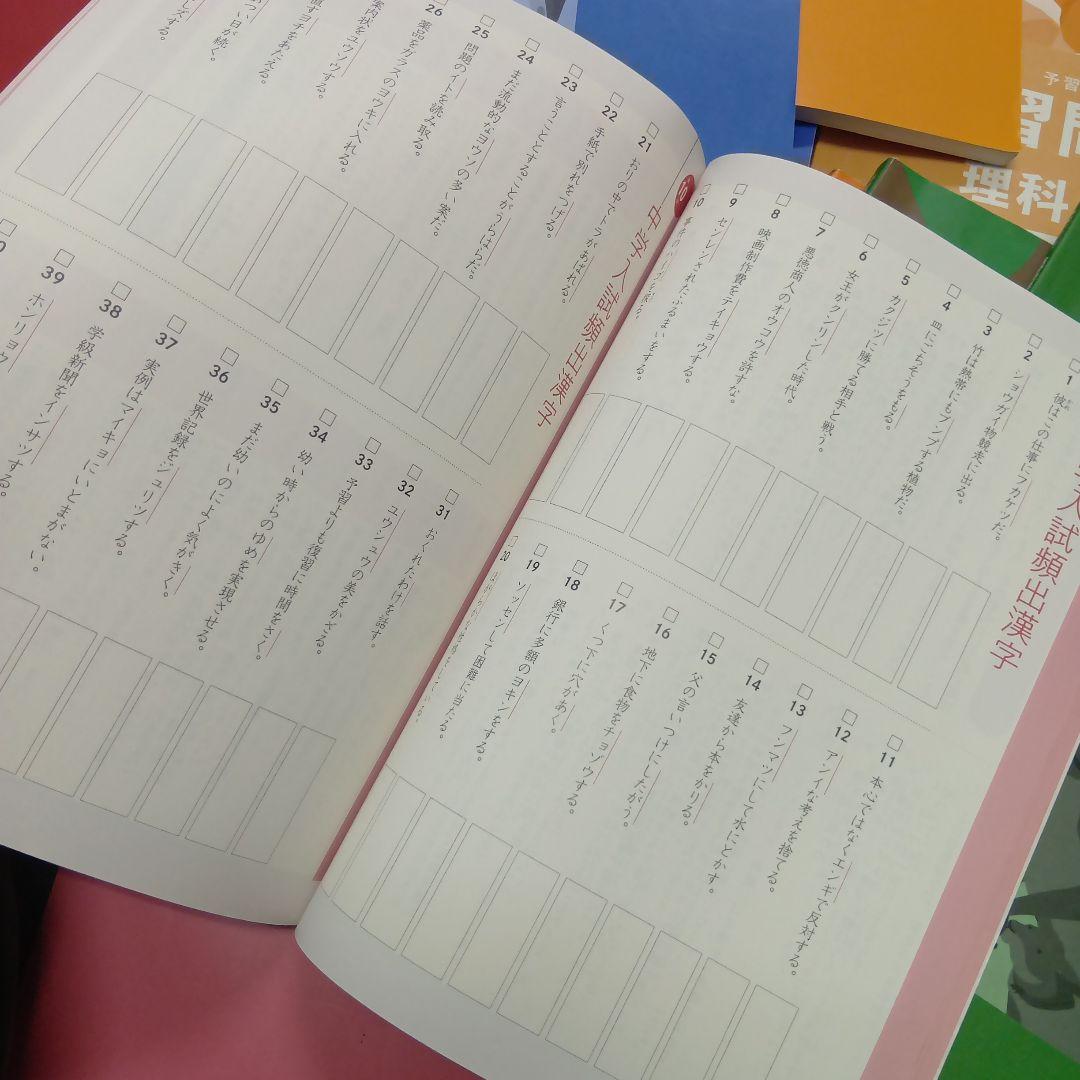 入試頻出漢字
1 彼はこの仕事にフカケツだ。
2 ショウガイ物競走に出る。
3 竹は熱帯にもブンプする植物だ。
4 皿にごちそうをもる。
5 カクジツに勝てる相手と戦う。
6 女王がクンリンした時代。
7 悪徳商人のオウコウを許すな。
8 映画制作費をテイキョウする。
9 センレンされたふるまいをする。
10
11 本心ではなくエンギで反対する。
12 アンイな考えを捨てる。
13 フンマツにして水にとかす。
14 友達から本をかりる。
15 父の言いつけにしたがう。
16 地下に食物をチョゾウする。
17 くつ下に穴があく。
18 銀行に多額のヨキンをする。
19 ソッセンして困難に当たる。
20
中学入試頻出漢字
21 おりの中でトラがあばれる。
22 手紙で別れをつげる。
23 言うこととすることがうらはらだ。
24 まだ流動的なヨウソの多い案だ。
25 問題のイトを読み取る。
26 薬品をガラスのヨウキに入れる。
案内状をユウソウする。
直すヨチをあたえる。
つい日が続く。
ズする。
31 おくれたわけを話す。
32 ユウシュウの美をかざる。
33 予習よりも復習に時間をさく。
34 幼い時からのゆめを実現させる。
35 まだ幼いのによく気がきく。
36 世界記録をジュリツする。
37 実例はマイキョにいとまがない。
38 学級新聞をインサツする。
39 ホンリョウ
予習
習問
理科